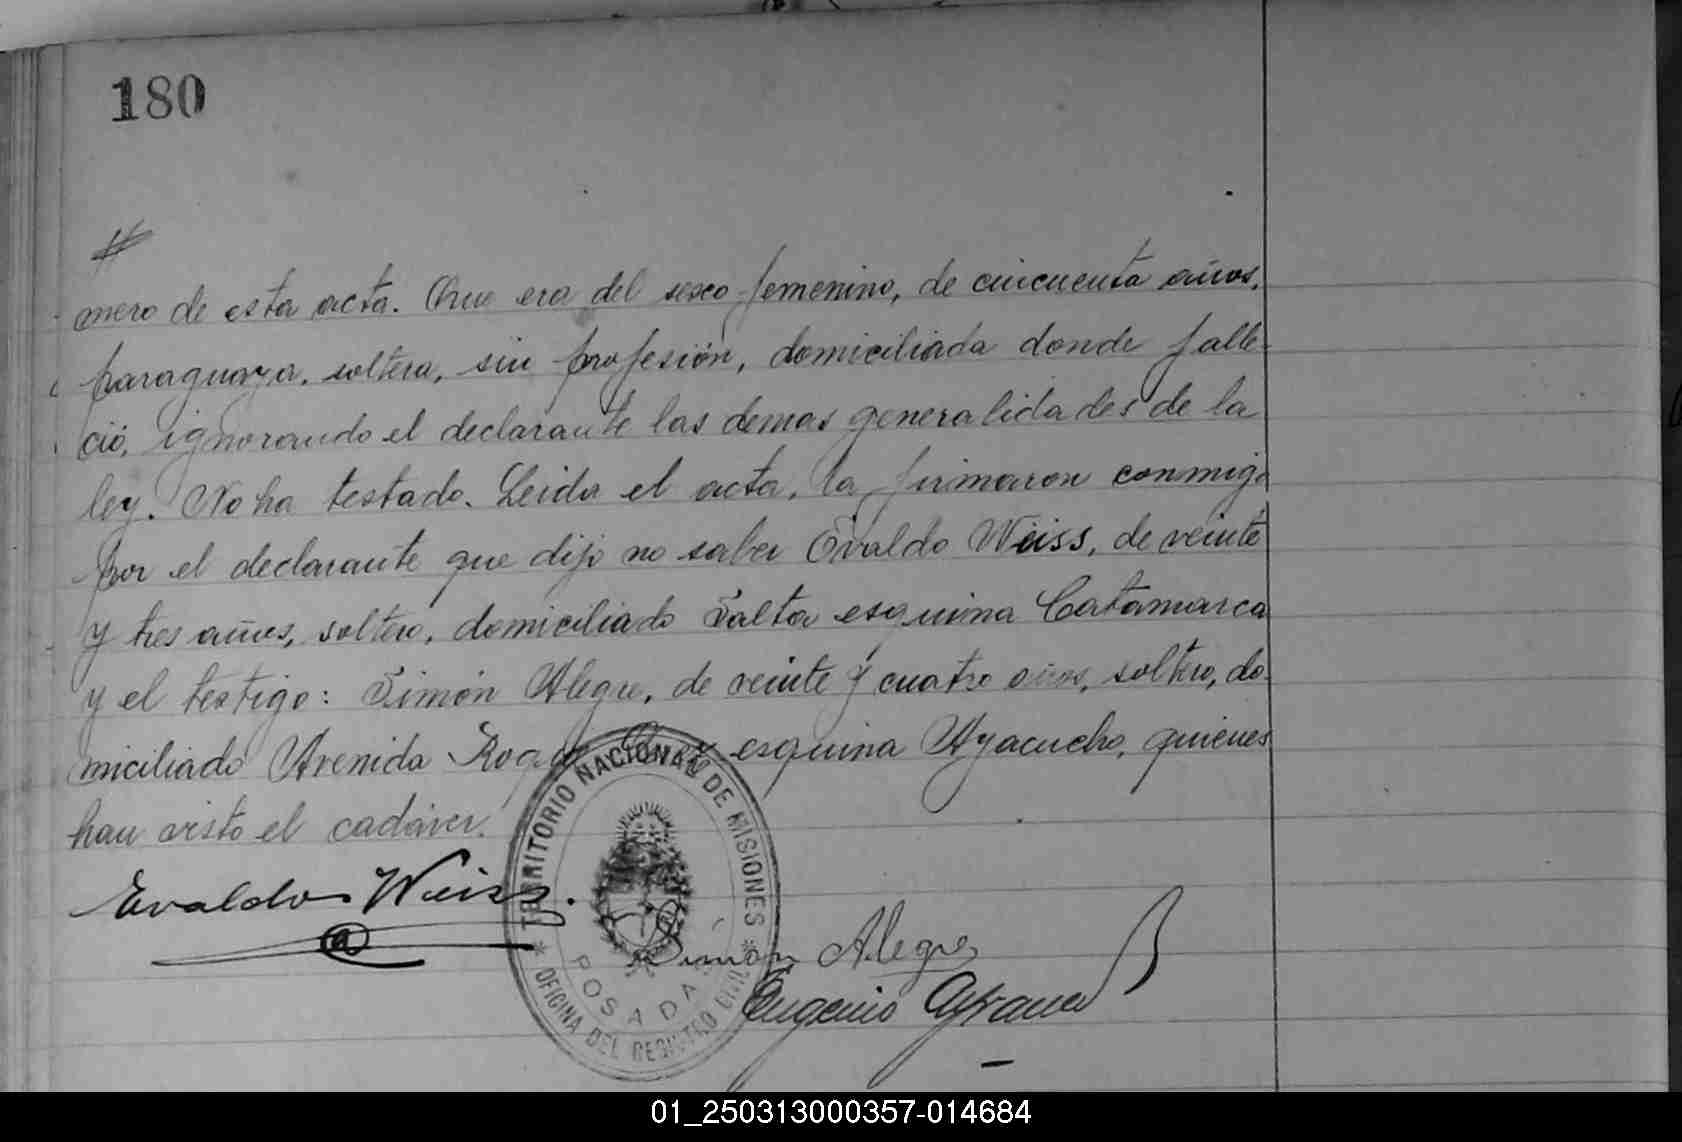 180
mero de esta acta. Que era del sexo femenino, de cincuenta años,
paraguaya, soltera, sin profesión, domiciliada donde falle-
ció, ignorando el declarante las demas generalidades de la
ley. No ha testado. Leida el acta, la firmaron conmigo
por el declarante que dijo no saber Evaldo Weiss, de veinte
y tres años, soltero, domiciliado Salta esquina Catamarca
y el testigo: Simón Alegre, de veinte y cuatro años, soltero, do-
miciliado Avenida Roque esquina Ayacucho, quienes
han visto el cadáver.
Evaldo Weiss.
Simón Alegre
Eugenio
TERRITORIO NACIONAL DE MISIONES
* OFICINA DEL REGISTRO CIVIL *
POSADAS
01_250313000357-014684